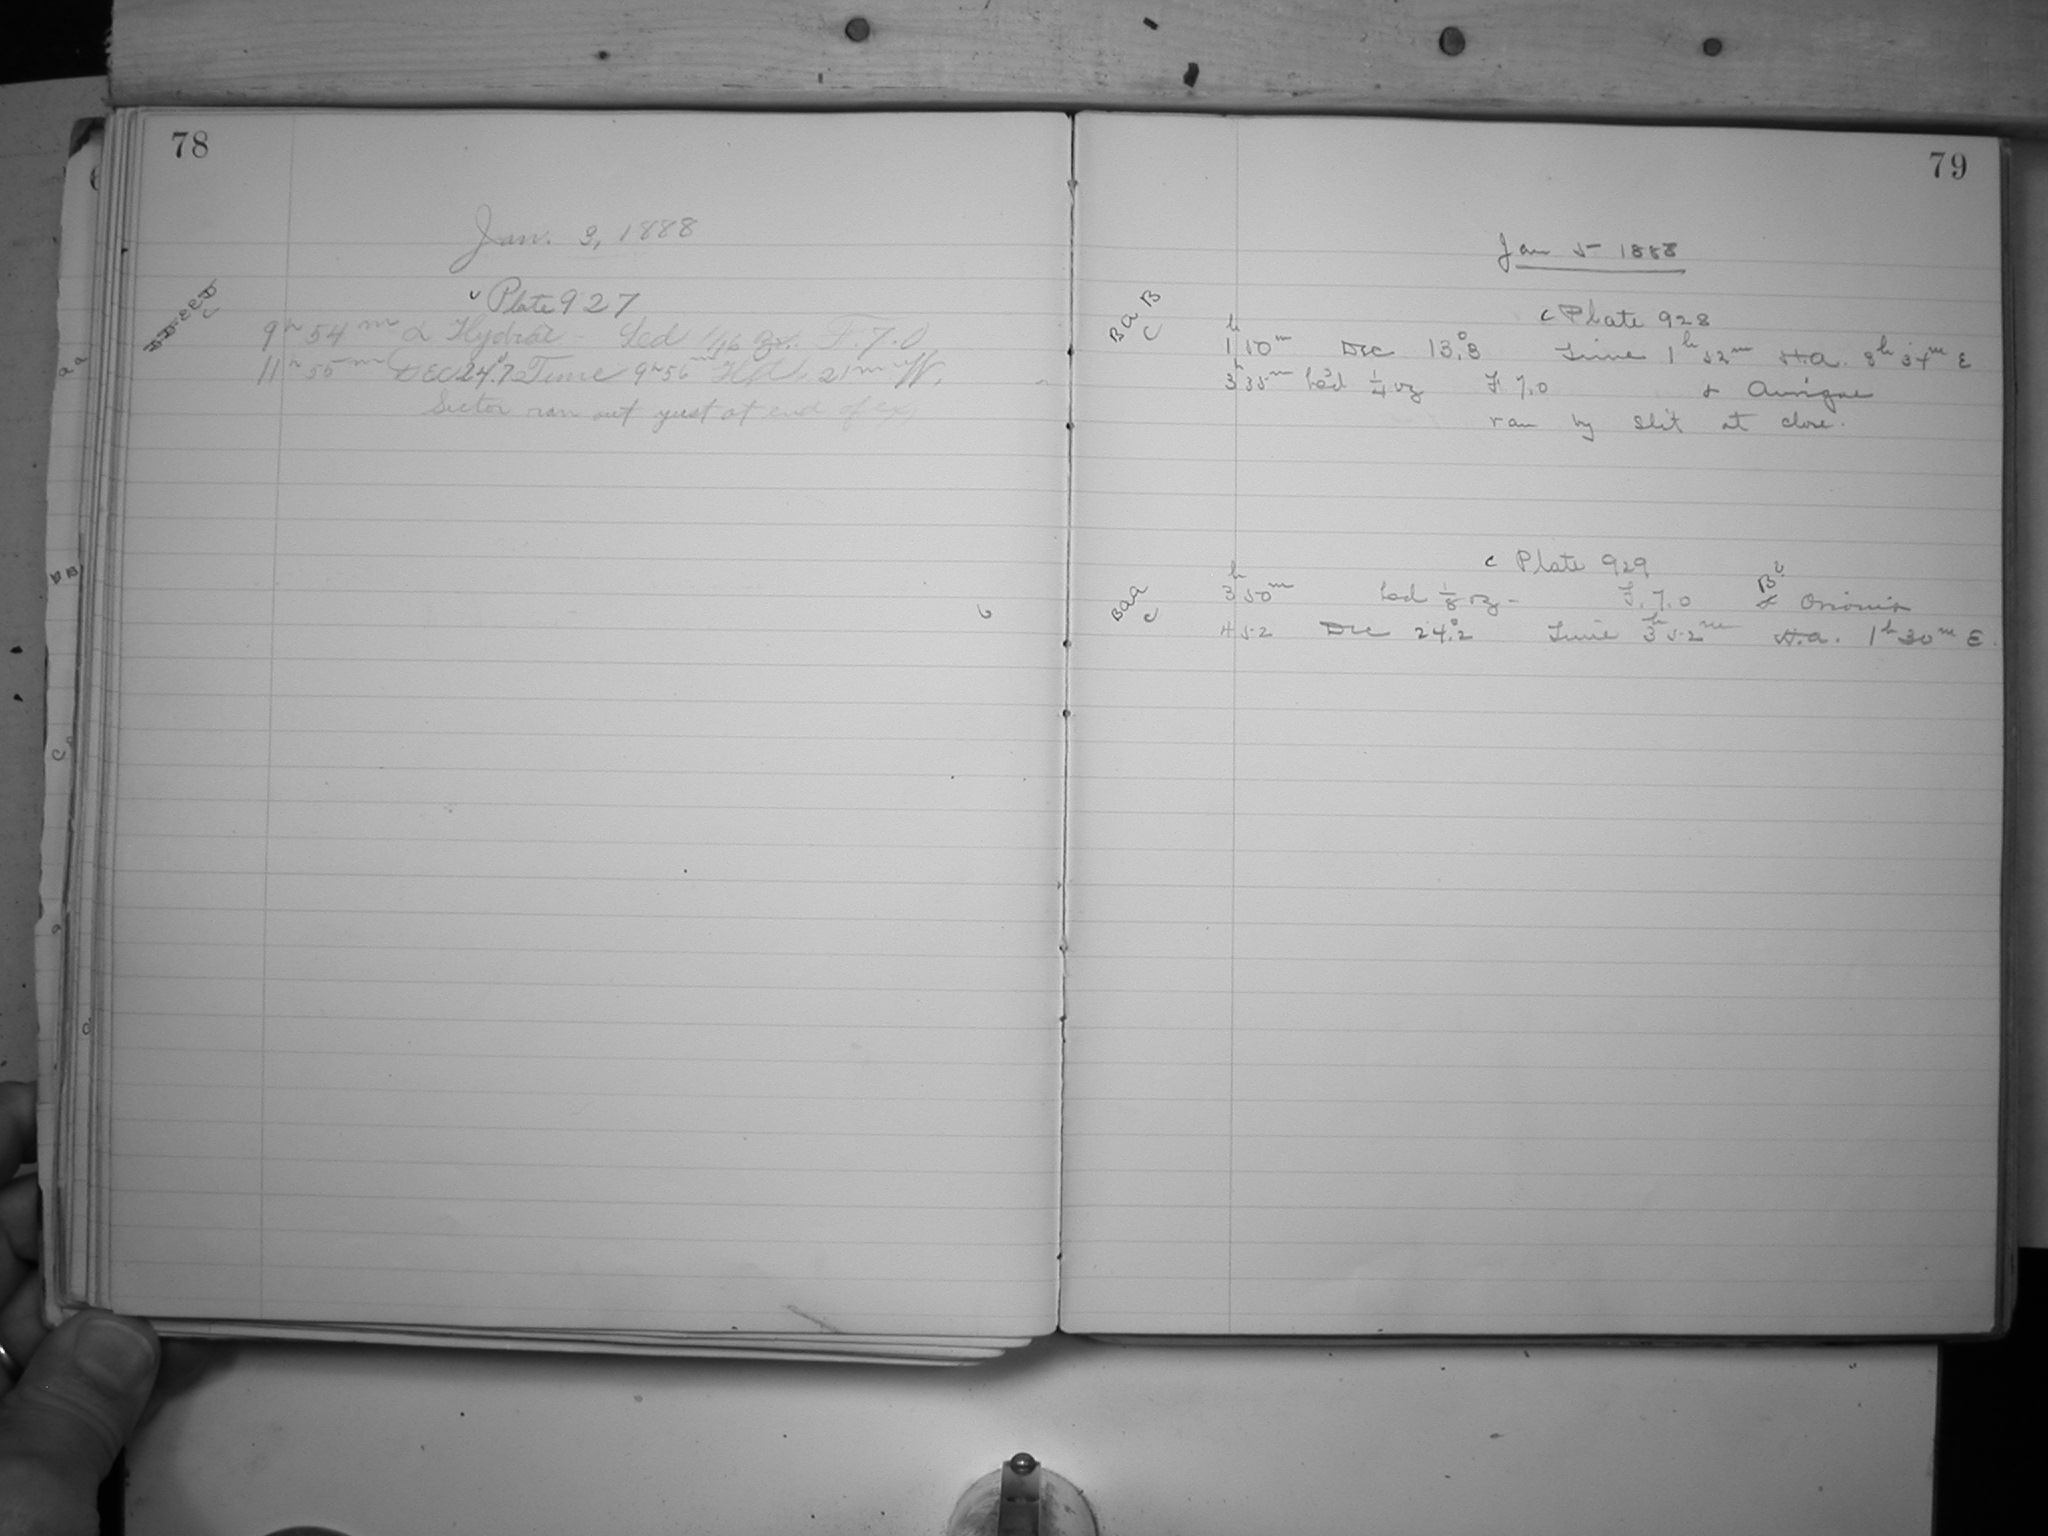 78
Jan. 3, 1888
Plate 927
9h 54m α Hydrae - Led 1/16 F. 7.0
11h 55m DEC 24.°7 Time 9h 56m H.A. 21m W.
Sector ran out just at end of ex.
79
Jan 5 1888
c Plate 928
B a B
C
1h 50m Dec 13.°8 Time 1h 52m H.A. 8h 34m E
3h 35m Led 1/4 oz F 7.0 α Aurigae
ran by slit at close.
c Plate 929
B a a
C
3h 50m Led 1/8 oz - F. 7.0 α Orionis
4 52 Dec 24.°2 Time 3h 52m H.a. 1h 30m E.